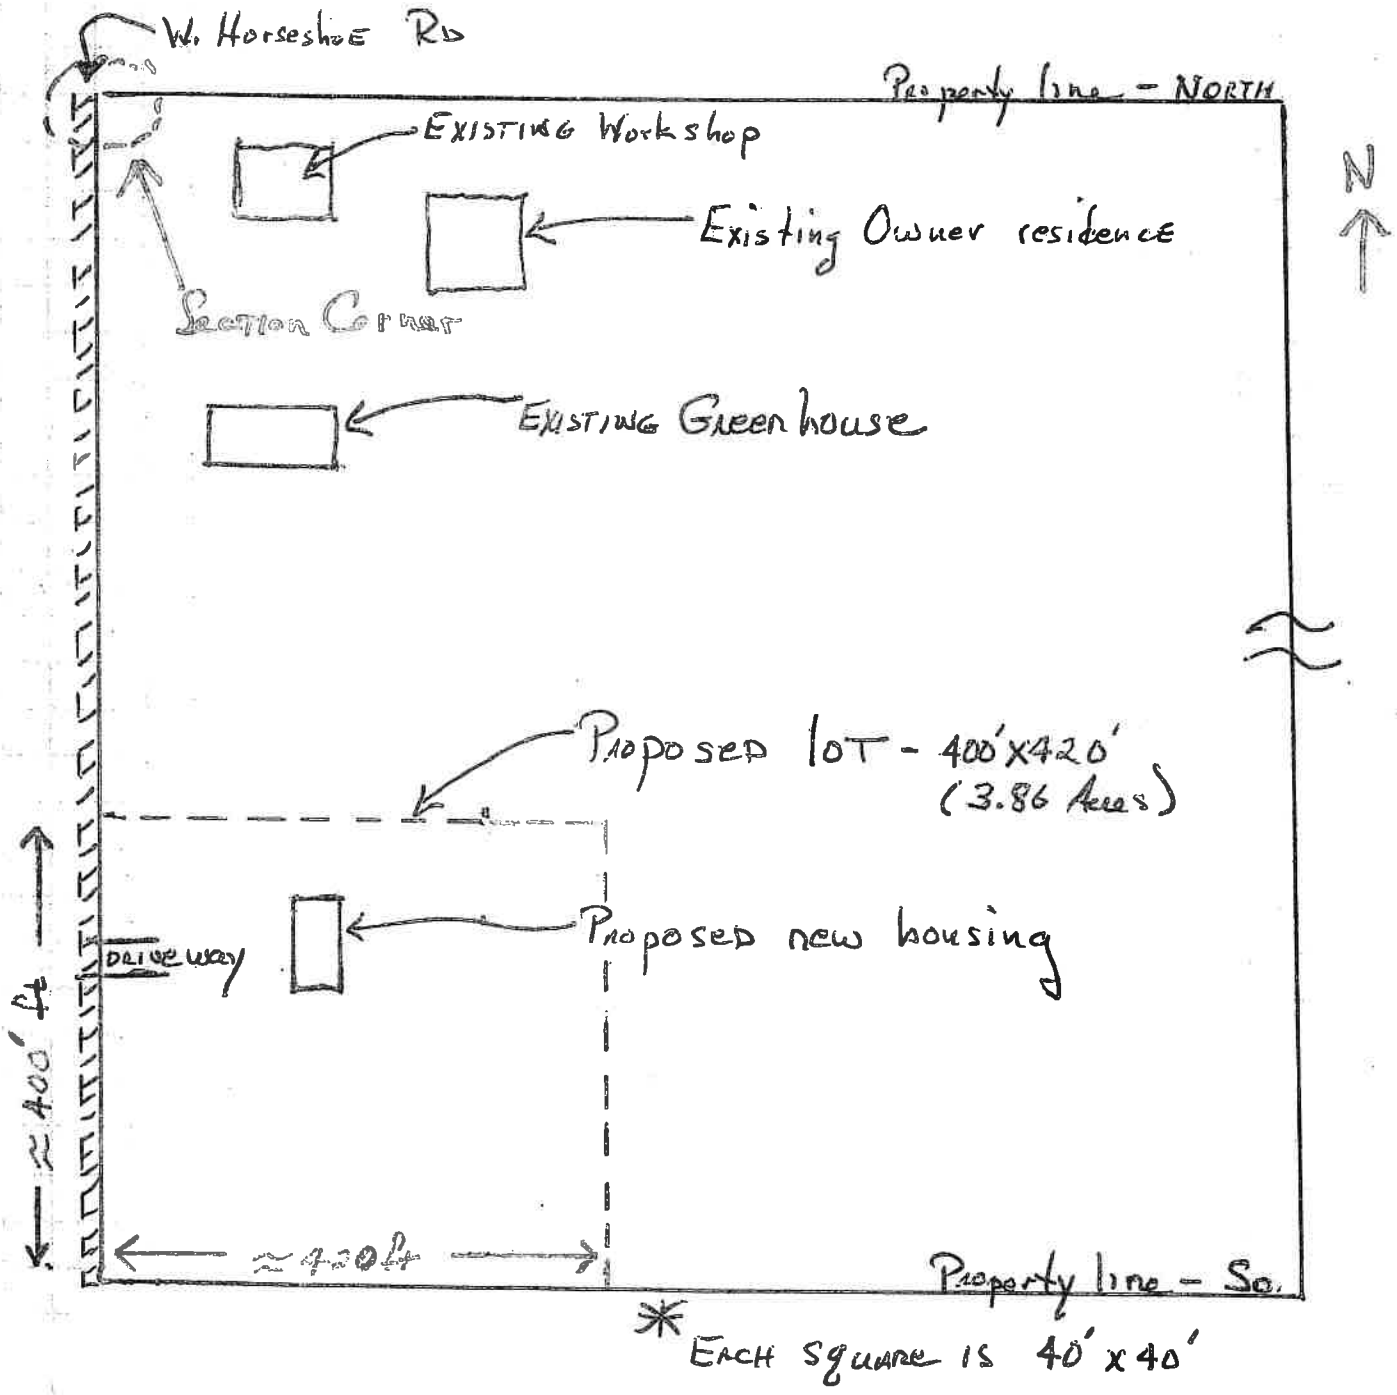 W. Horseshoe Rd
Property line - NORTH
Existing Workshop
N
Existing Owner residence
Section Corner
Existing Greenhouse
Proposed lot - 400'x420'
(3.86 Acres)
Proposed new housing
Driveway
≈ 400' ft
≈ 420 ft
Property line - So.
* Each square is 40' x 40'